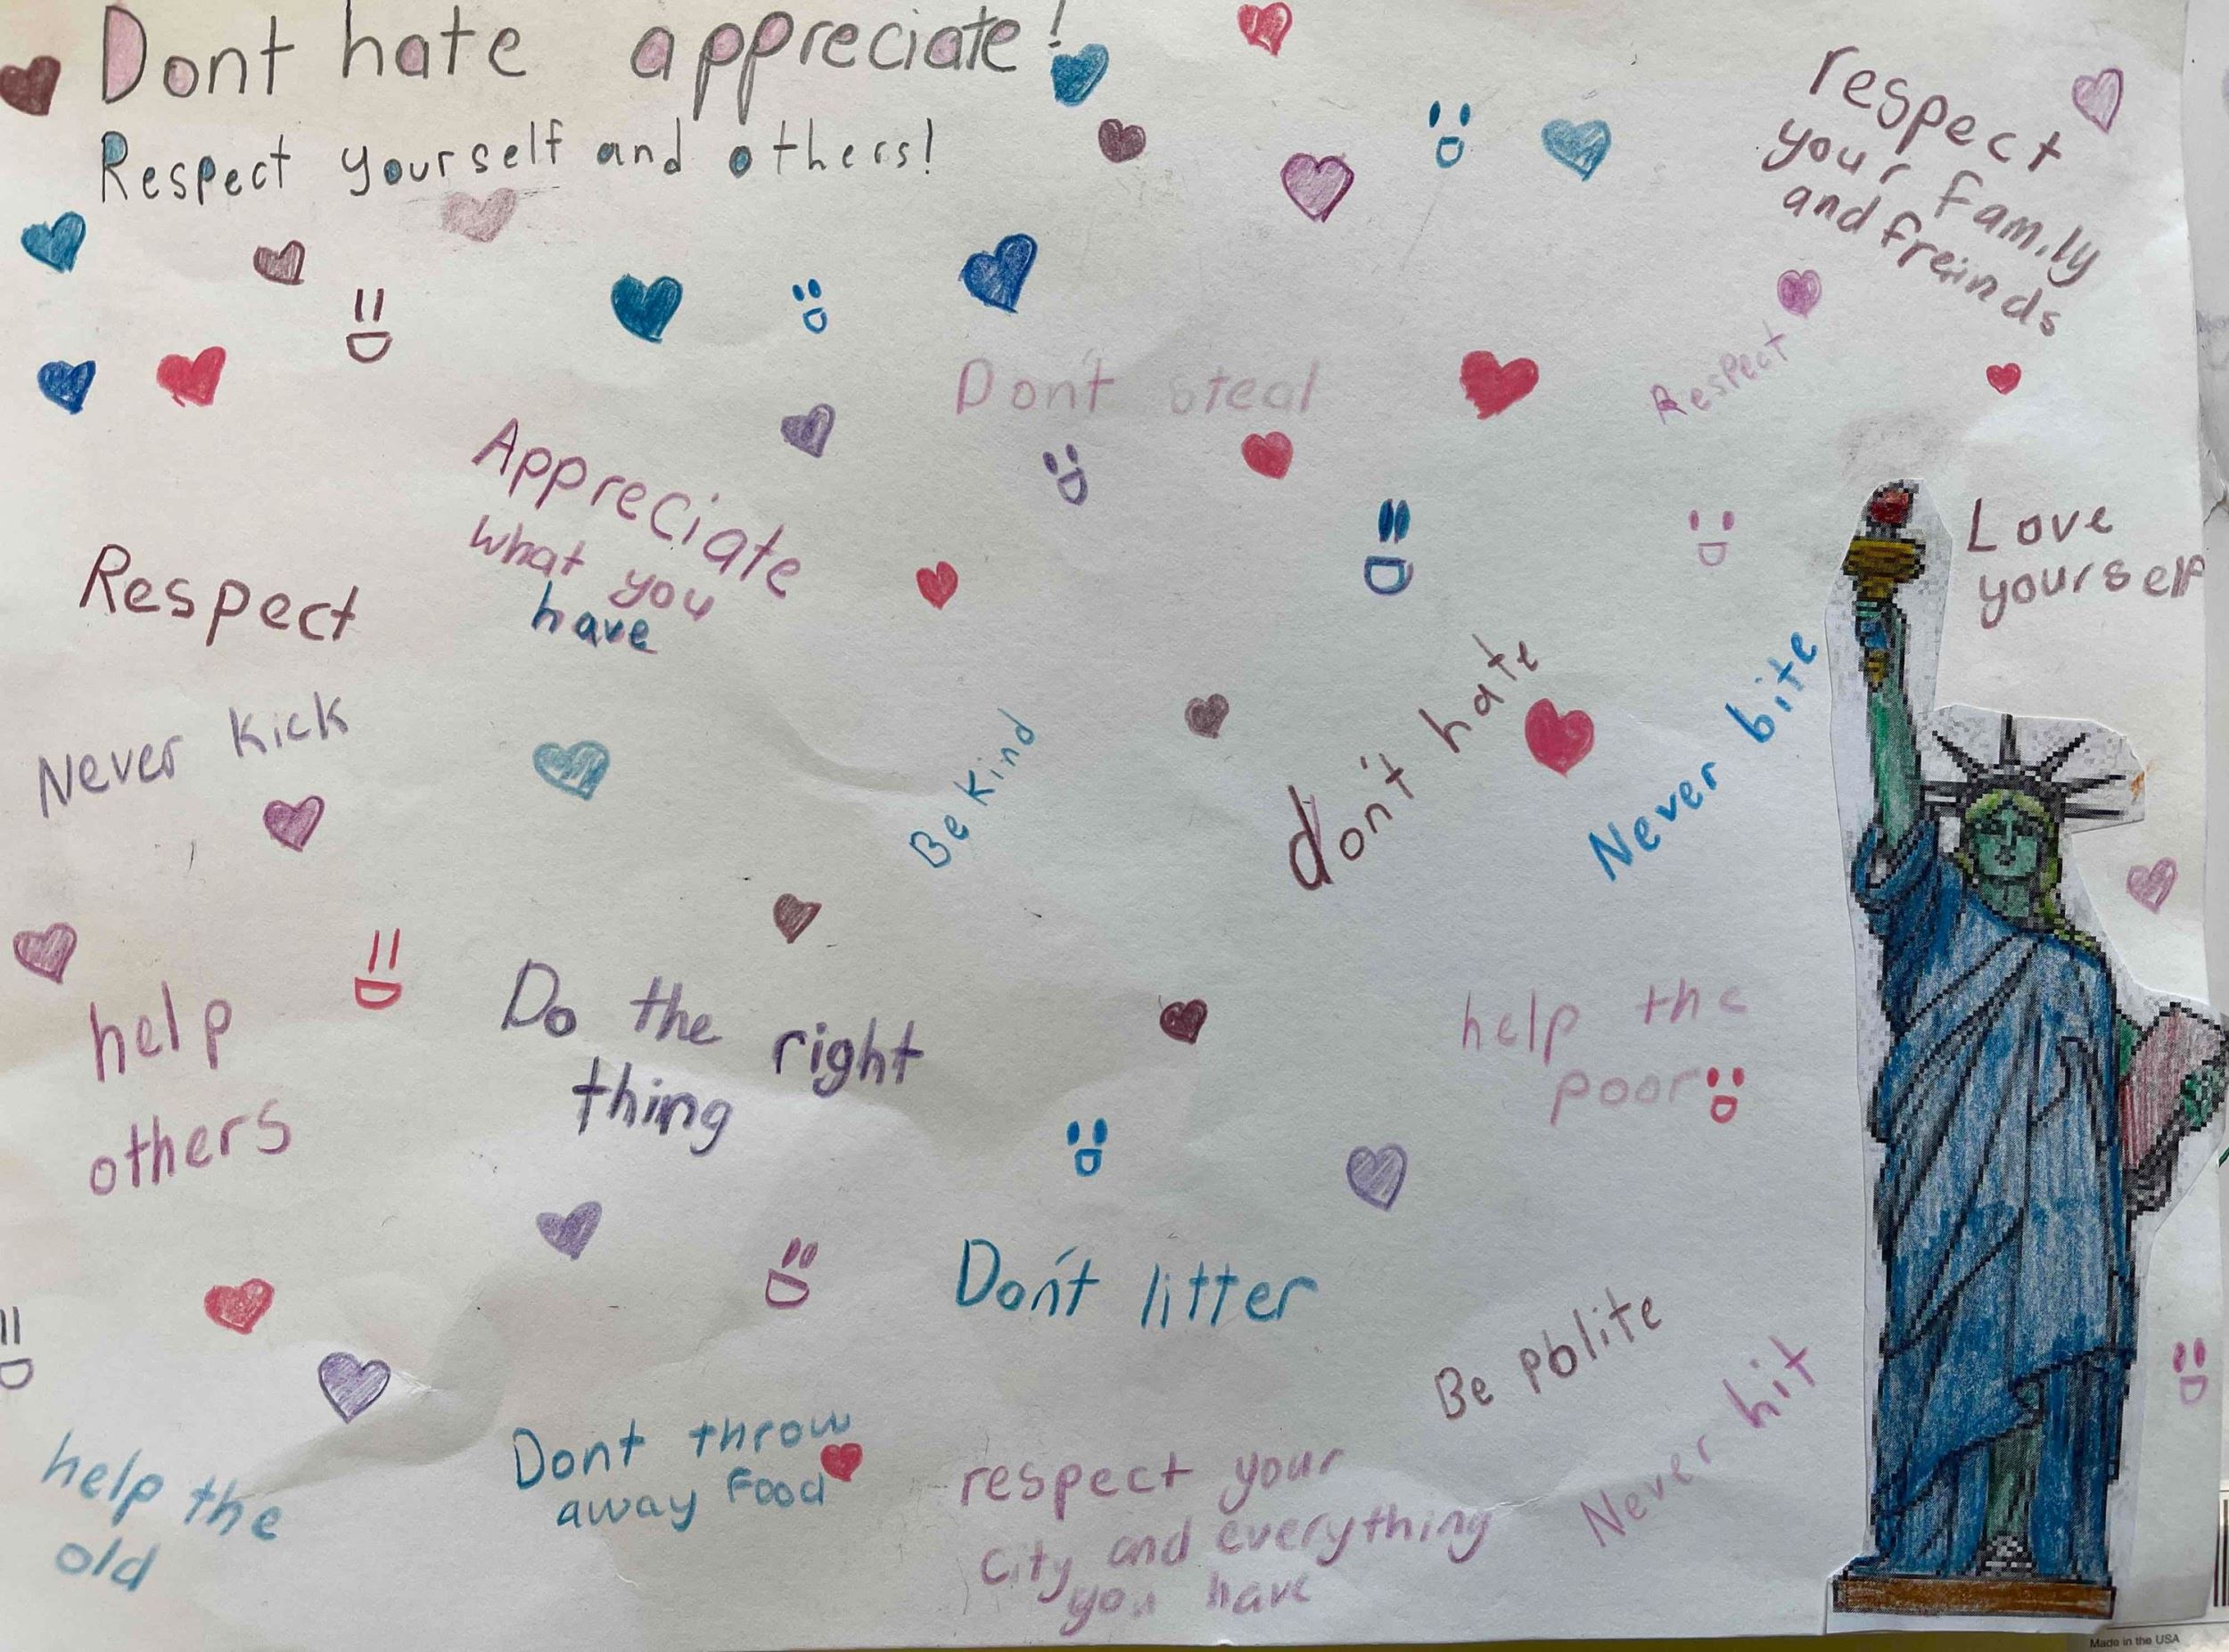 Dont hate appreciate!
Respect yourself and others!
respect
your family
and freinds
Don't steal
Respect
Appreciate
what you
have
Love
yourself
Respect
Never kick
Be Kind
don't hate
Never bite
help
others
Do the right
thing
help the
poor
Don't litter
Be polite
Never hit
help the
old
Dont throw
away food
respect your
City and everything
you have
Made in the USA